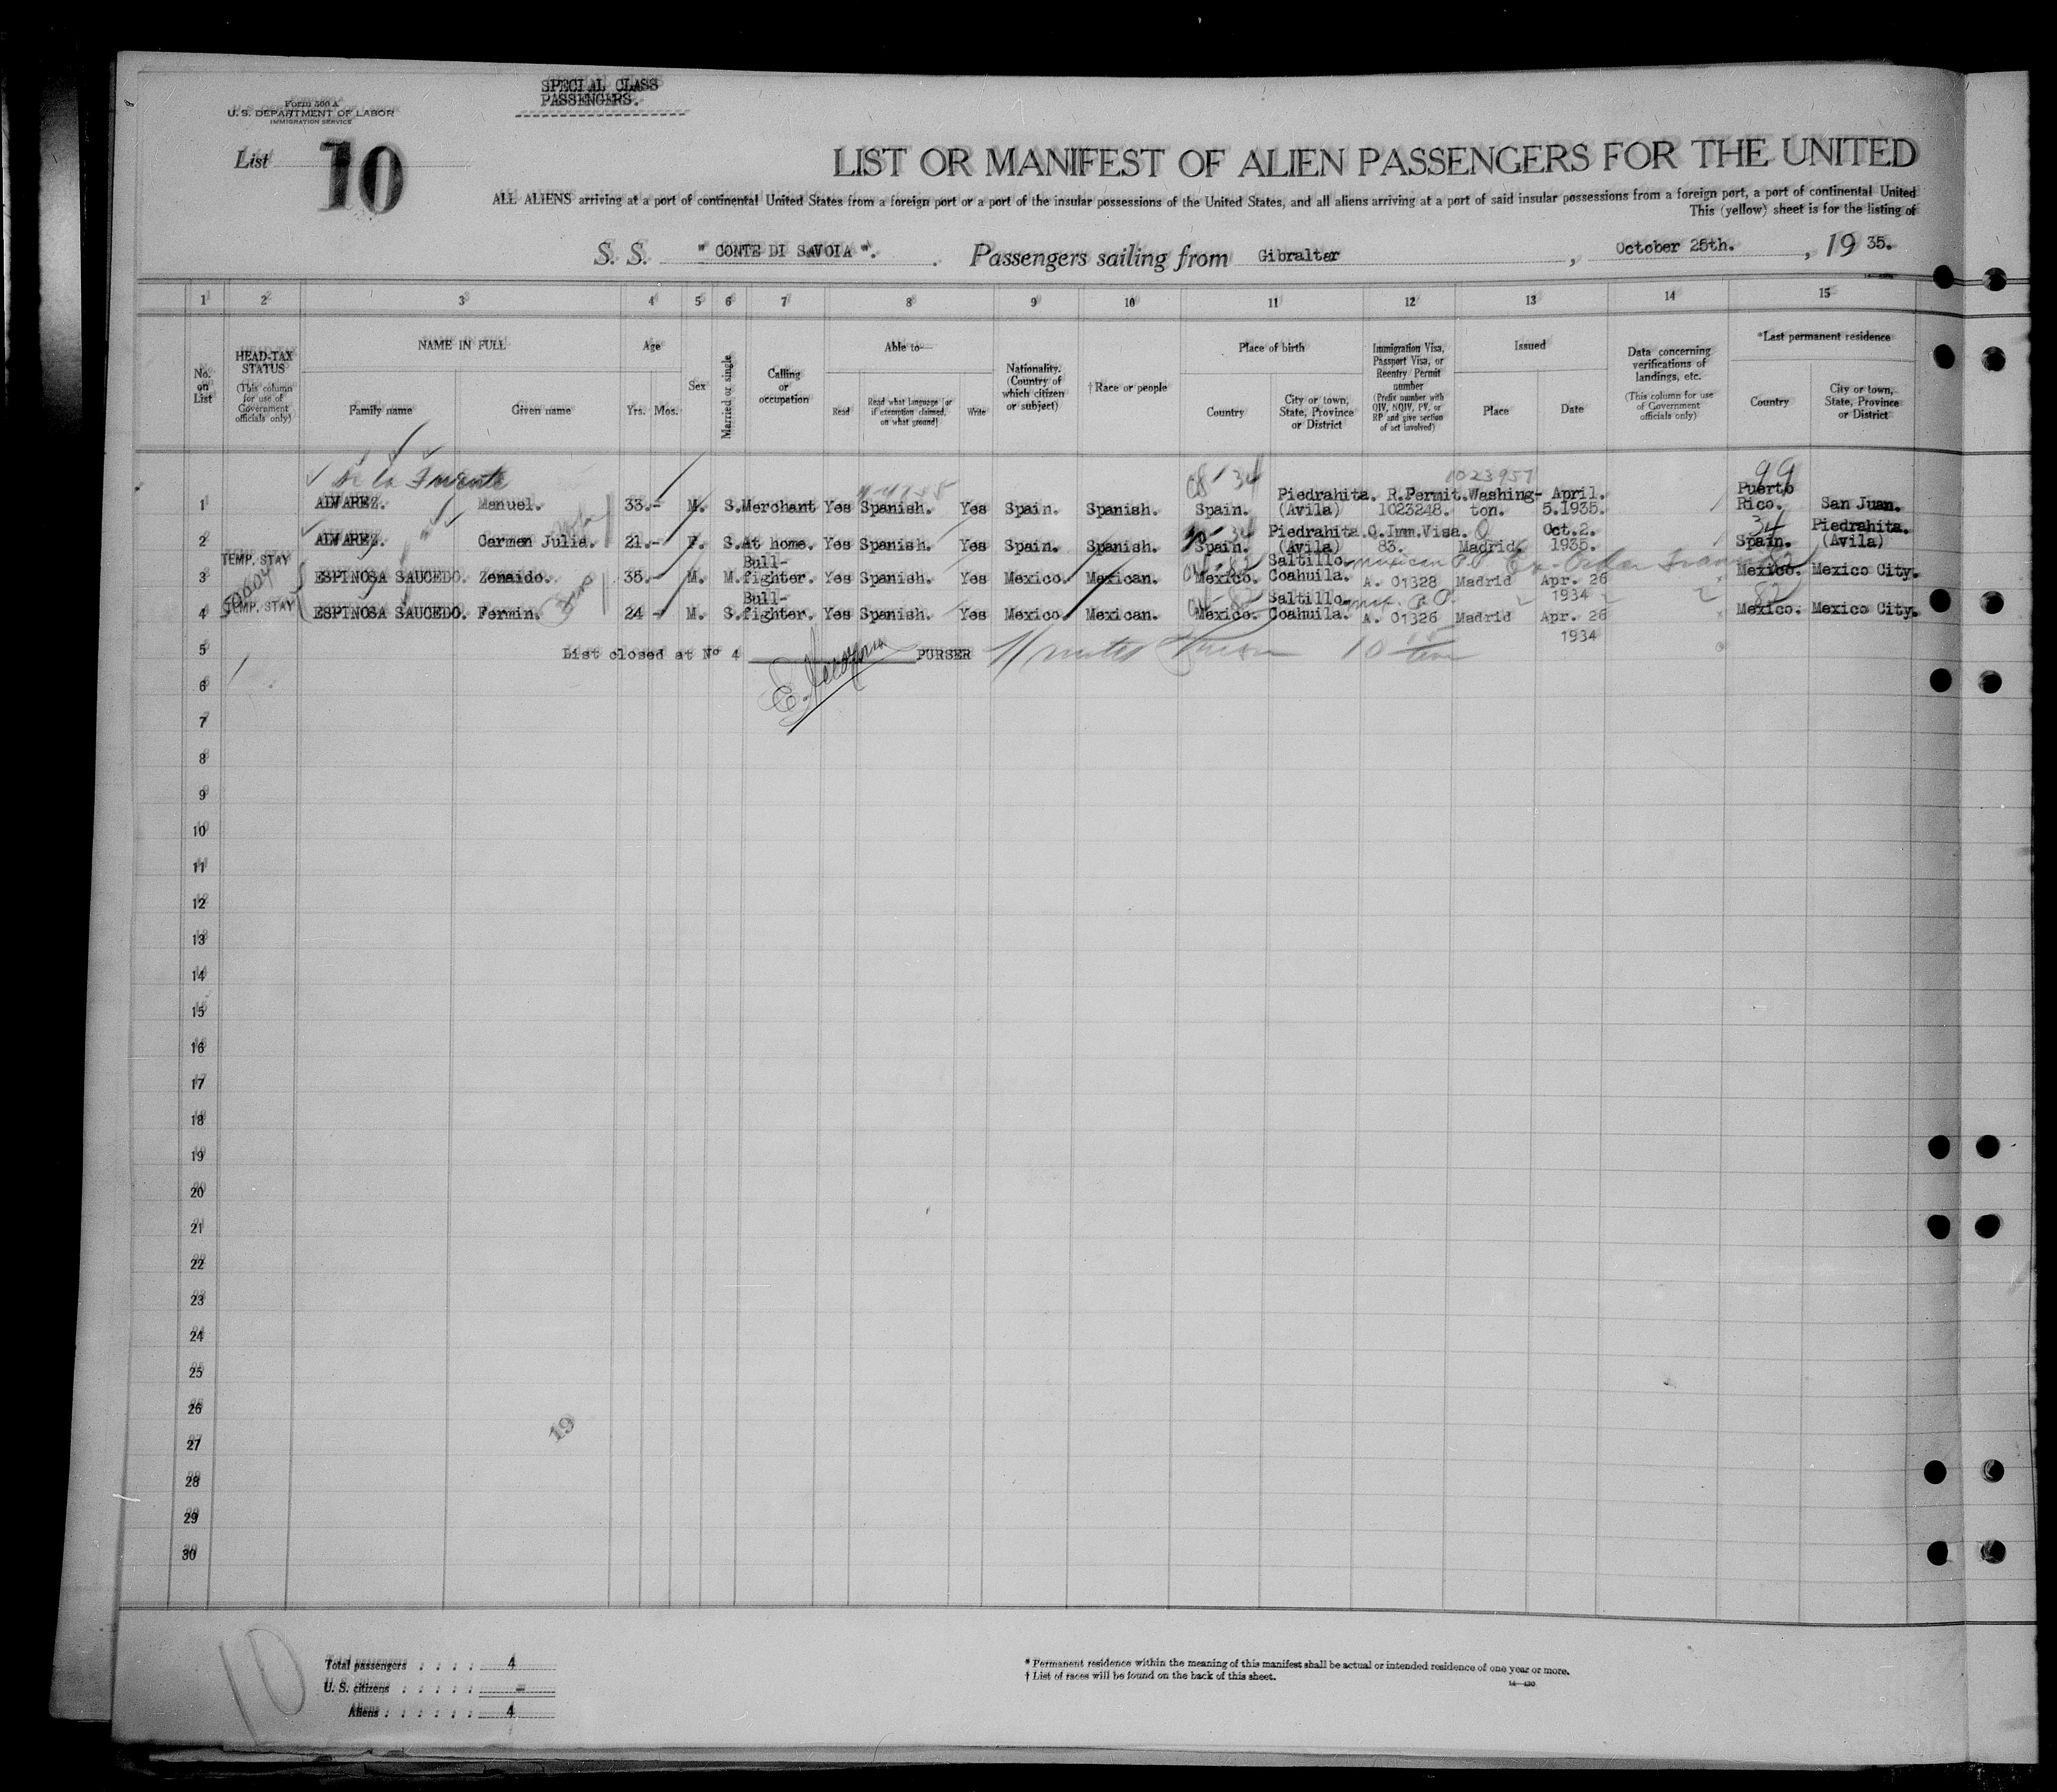 SPECIAL CLASS
PASSENGERS.
Form 500 A
U. S. DEPARTMENT OF LABOR
IMMIGRATION SERVICE
List 10
LIST OR MANIFEST OF ALIEN PASSENGERS FOR THE UNITED
ALL ALIENS arriving at a port of continental United States from a foreign port or a port of the insular possessions of the United States, and all aliens arriving at a port of said insular possessions from a foreign port, a port of continental United
This (yellow) sheet is for the listing of
S. S. " CONTE DI SAVOIA ". Passengers sailing from Gibraltar, October 25th., 19 35.
1 2 3 4 5 6 7 8 9 10 11 12 13 14 15
No. on List
HEAD-TAX STATUS (This column for use of Government officials only)
NAME IN FULL Family name Given name
Age Yrs. Mos.
Sex
Married or single
Calling or occupation
Able to— Read Read what language [or if exemption claimed, on what ground] Write
Nationality. (Country of which citizen or subject)
†Race or people
Place of birth Country City or town, State, Province or District
Immigration Visa, Passport Visa, or Reentry Permit number (Prefix number with QIV, NQIV, PV, or RP and give section of act involved)
Issued Place Date
Data concerning verifications of landings, etc. (This column for use of Government officials only)
*Last permanent residence Country City or town, State, Province or District
De la Fuente 08 34 1023957 99
1 ALVAREZ. Manuel. 33.- M. S. Merchant Yes Spanish. Yes Spain. Spanish. Spain. Piedrahita. (Avila) R.Permit. 1023248. Washington. April. 5.1935. Puerto Rico. San Juan.
2 ALVAREZ. " Carmen Julia. 21.- F. S. At home. Yes Spanish. Yes Spain. Spanish. Spain. Piedrahita. (Avila) Q.Imm.Visa. 83. Madrid. Oct.2. 1935. 34 Spain. Piedrahita. (Avila)
3 TEMP. STAY ESPINOSA SAUCEDO. Zenaido. 35.- M. M. Bull-fighter. Yes Spanish. Yes Mexico. Mexican. Mexico. Saltillo. Coahuila. A. 01328 Madrid Apr. 26 1934 Mexico. Mexico City.
4 TEMP. STAY ESPINOSA SAUCEDO. Fermin. 24 - M. S. Bull-fighter. Yes Spanish. Yes Mexico. Mexican. Mexico. Saltillo. Coahuila. A. 01326 Madrid Apr. 26 1934 82 Mexico. Mexico City.
5 List closed at Nº 4 PURSER
6
7
8
9
10
11
12
13
14
15
16
17
18
19
20
21
22
23
24
25
26
19
27
28
29
30
10
Total passengers : : : : 4
U. S. citizens : : : : : -
Aliens : : : : : : 4
* Permanent residence within the meaning of this manifest shall be actual or intended residence of one year or more.
† List of races will be found on the back of this sheet.